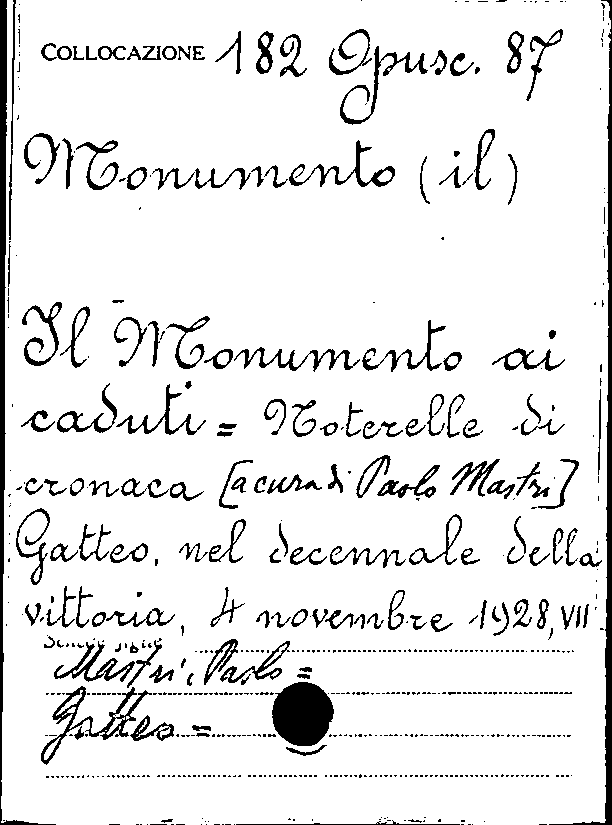 COLLOCAZIONE 182 Opusc. 87
Monumento (il)
Il Monumento ai
caduti = Noterelle di
cronaca [a cura di Paolo Mastri]
Gatteo, nel decennale della
vittoria, 4 novembre 1928, VII
Mastri, Paolo =
Gatteo =